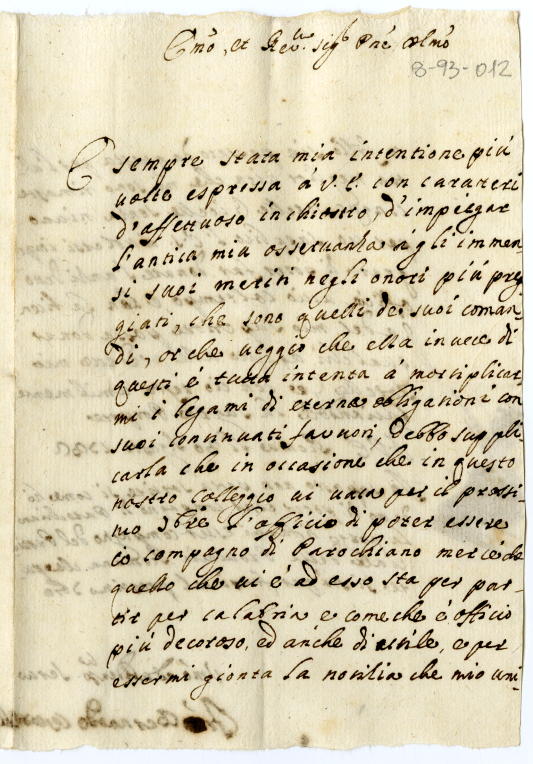 Emo, et Rev. Sig. Pne Colmo
8-93-012
E sempre stata mia intentione più
volte espressa à V. E. con caratteri
d'affettuoso inchiostro, d'impiegar
l'antica mia osservanza à gli immen-
si suoi meriti negli onori più preg
giati, che sono quelli de suoi coman
di, or che veggio che ella in vece di
questi è tutta intenta à moltiplicar
mi i legami di eterne obligationi con
suoi continuati favuori, debbo suppli
carla che in occasione che in questo
nostro colleggio vi vaca per il prossi
mo 9bre l'officio di poter essere
co compagno di Parochiano mercé che
quello che vi è ad esso sta per par
tir per calabria e come che è officio
più decoroso, ed anche di utile, e per
essermi gionta la notitia che mio uni-